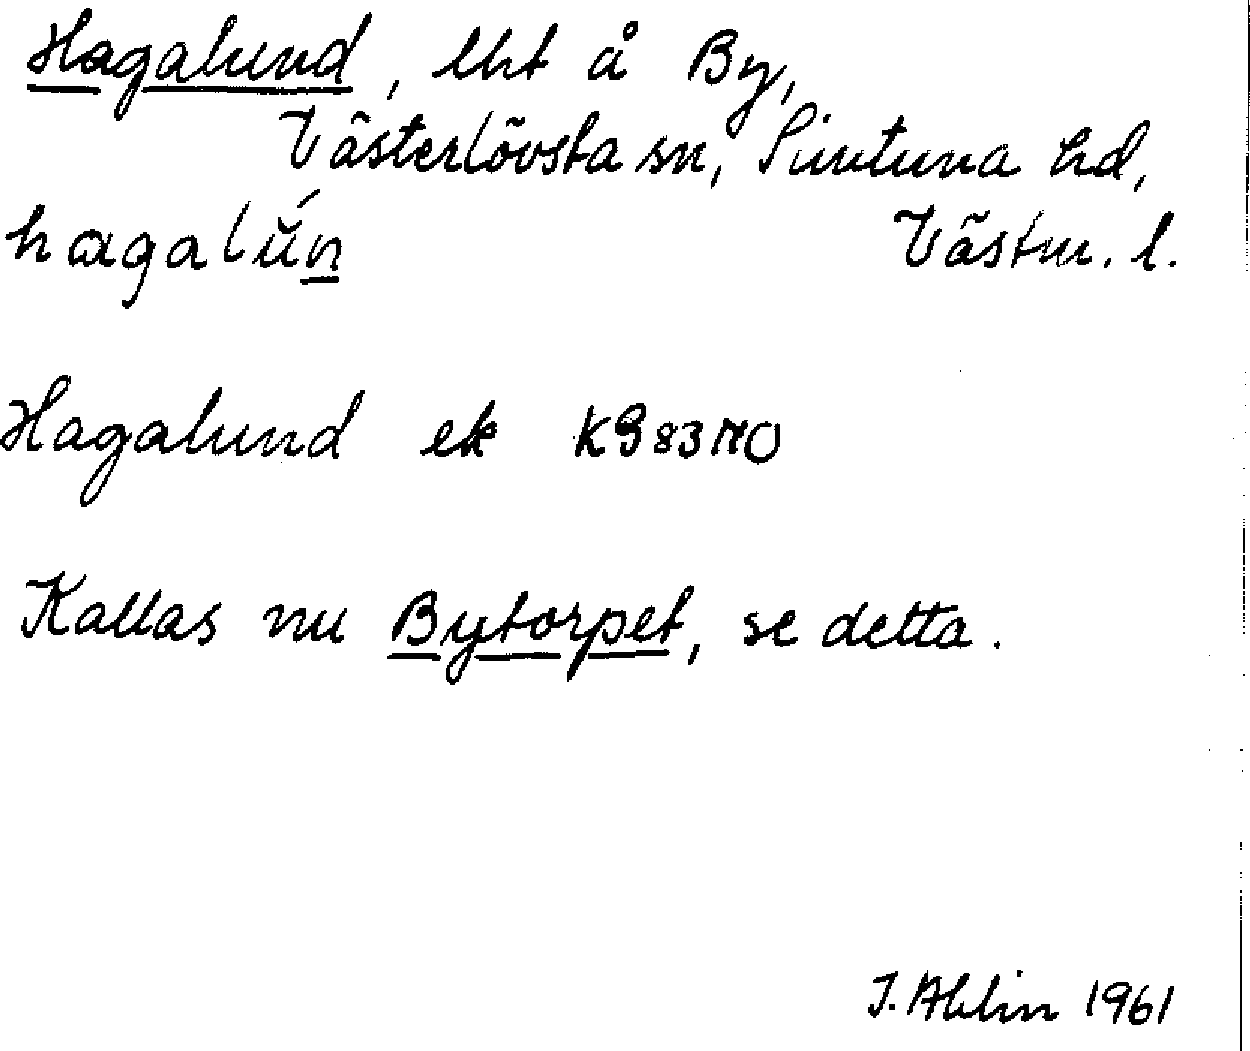 Hagalund, lht å By,
Västerlövsta sn, Simtuna hd,
hagalún Västm. l.
Hagalund ek K983NO
Kallas nu Bytorpet, se detta.
J. Ahlin 1961